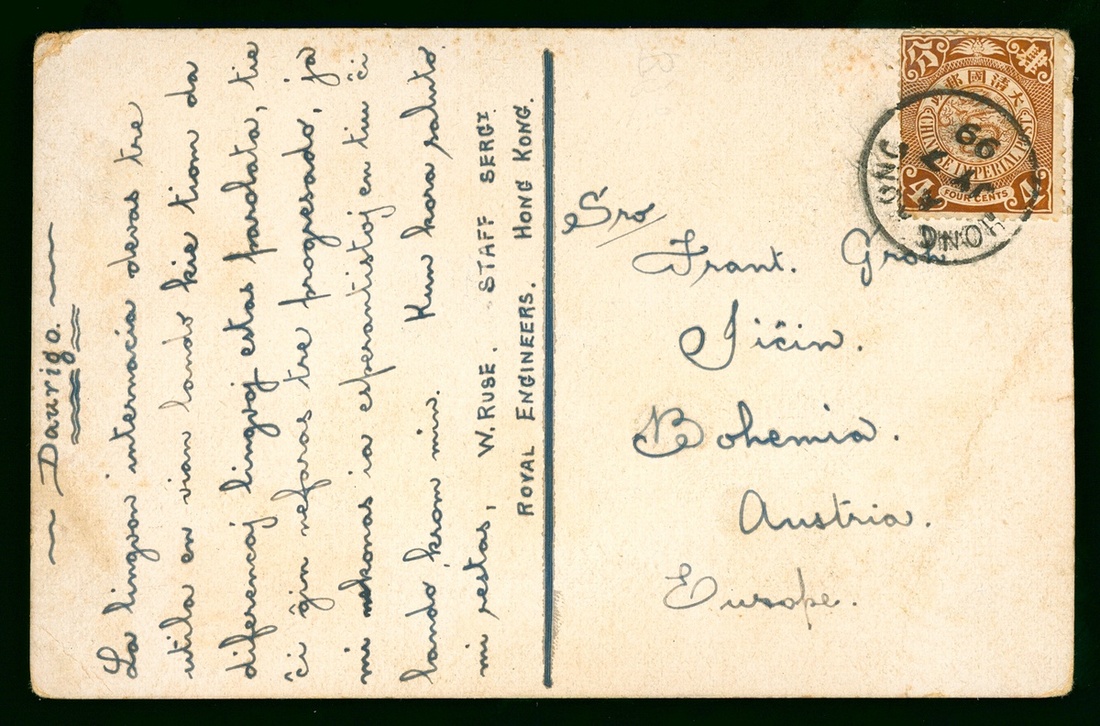 Daurigo.
La lingvon internacia devas tre
utila en vian lando kie tiom da
diferencaj lingvoj estas parolata, tie
ĉi ĝin nefaras tre progresado, ja
mi nekonas ia esperantistoj en tiu ĉi
lando krom min. Kun kora saluto
mi restas, W. RUSE. STAFF SERGT.
ROYAL ENGINEERS. HONG KONG.
Sro
Frant. Groh
Jičin.
Bohemia.
Austria.
Europe.
大清國郵政
CHINESE IMPERIAL POST
4 FOUR CENTS 4
HONG KONG